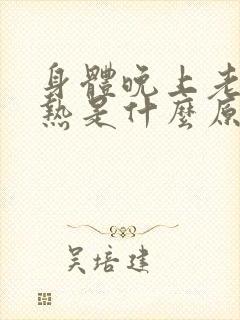 身體晚上老
熱是什麼原
吴培建